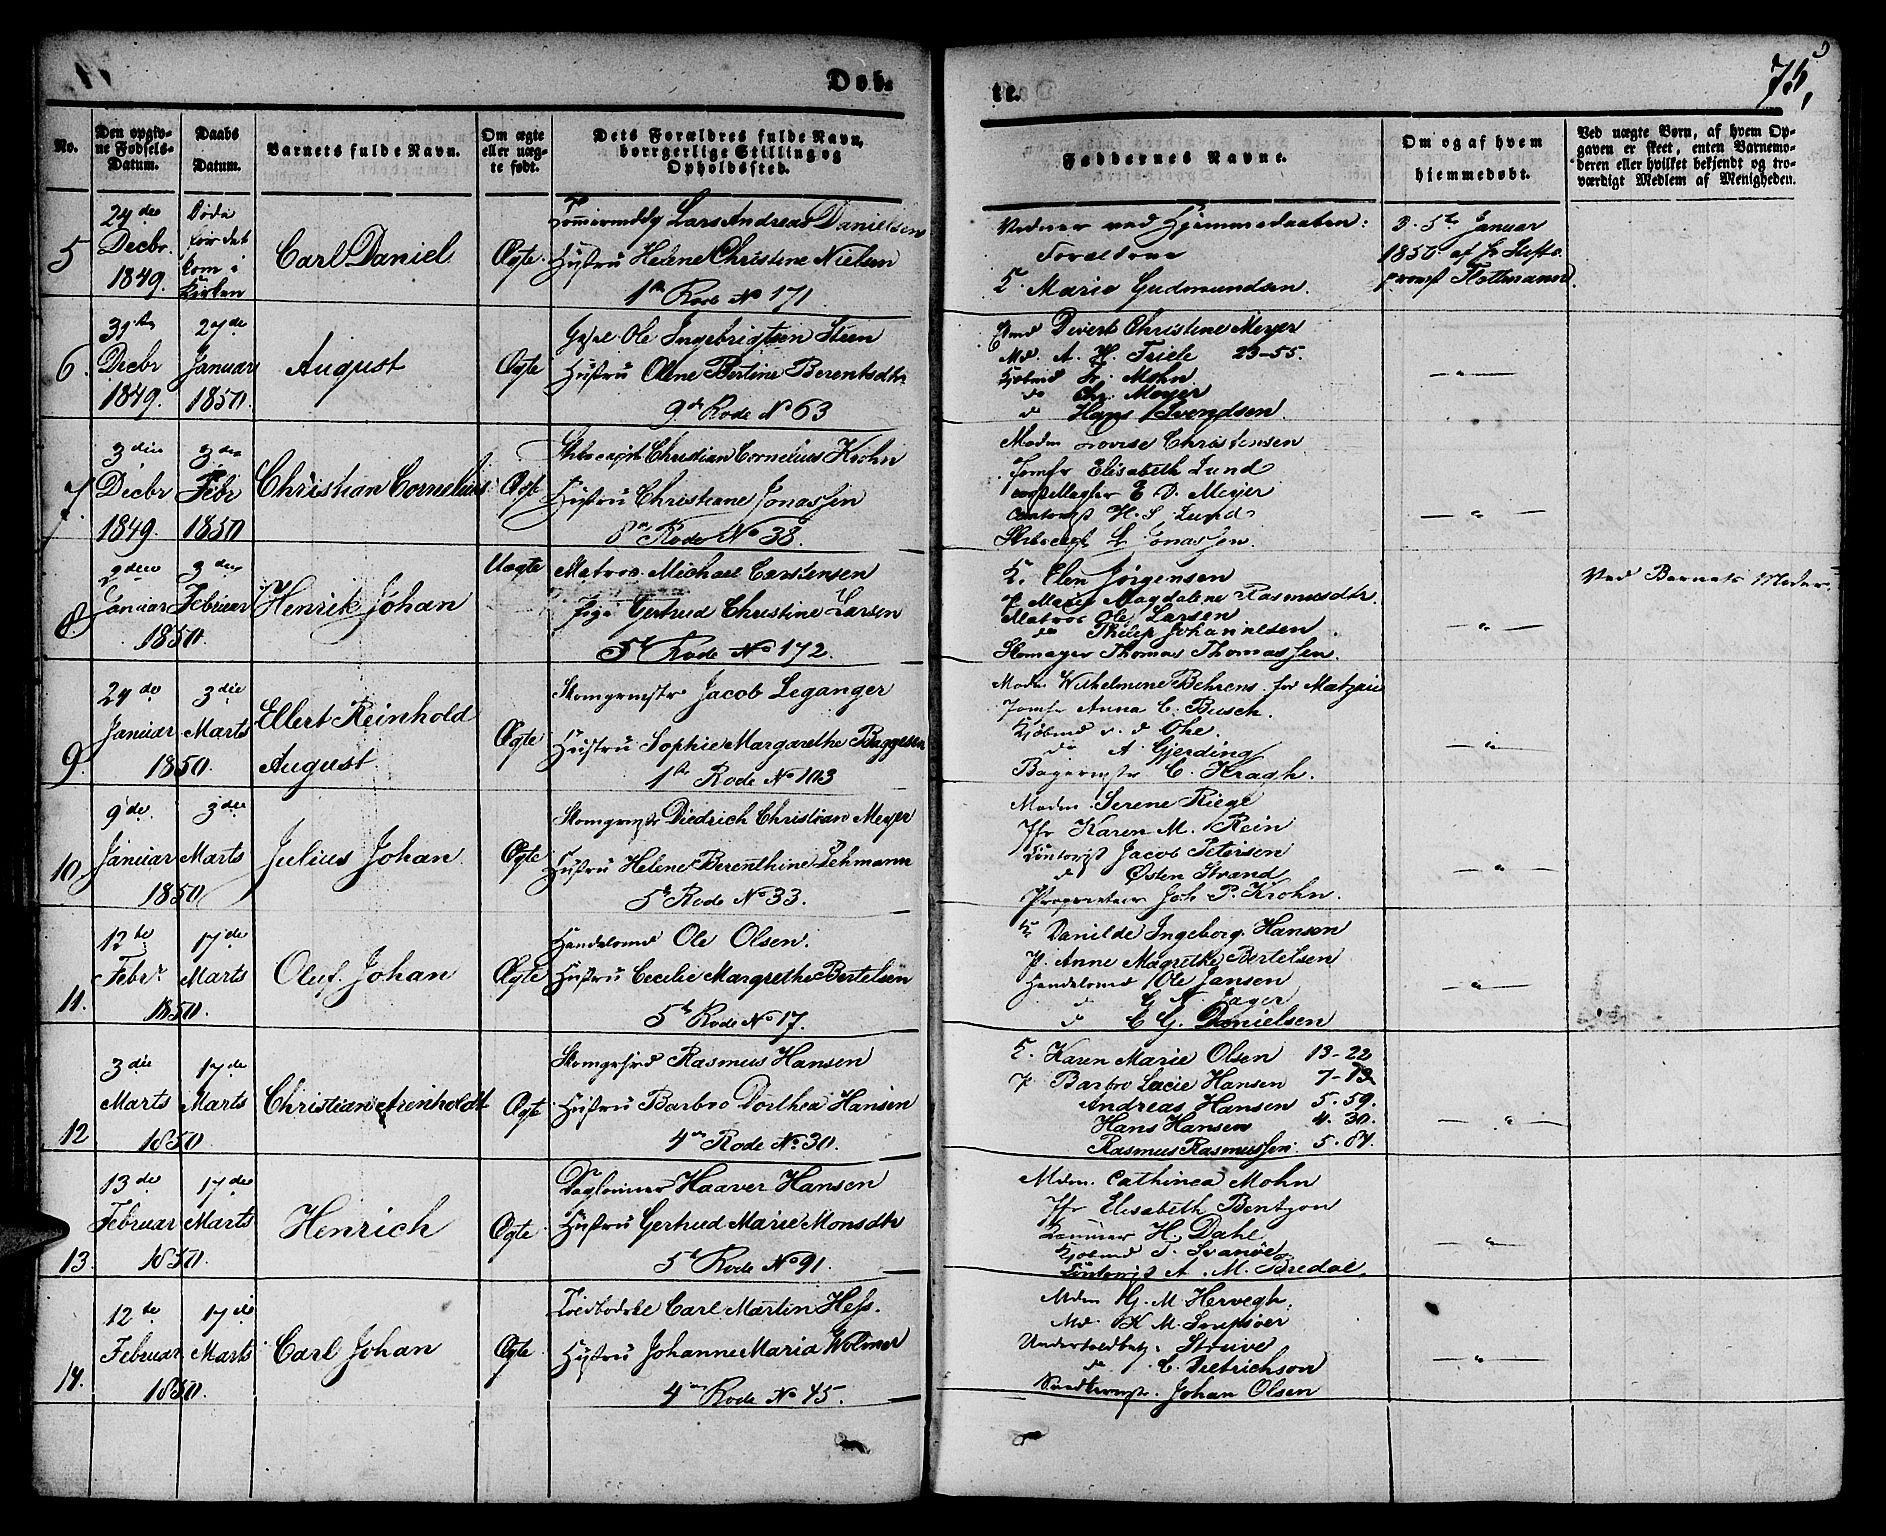 Døb-
te.
75,
No.
Den opgiv-
ne Fødsels-
Datum.
Daabs
Datum.
Barnets fulde Navn.
Om ægte
eller uæg-
te født.
Dets Forældres fulde Navn,
borrgerlige Stilling og
Opholdssted.
Faddernes Navne.
Om og af hvem
hjemmedøbt.
Ved uægte Børn, af hvem Op-
gaven er skeet, enten Barnemo-
deren eller hvilket bekjendt og tro-
værdigt Medlem af Menigheden.
5
24de
Decbr
1849.
Døde
før det
kom i
Kirken
Carl Daniel
Ægte.
Lars Andreas Danielsen
Hustru Helene Christine Nielsen
1ste Rode No 171
ved Hjemmedaaben:
Forældrene
K. Marie Gudmundsen.
D. 5te Januar
1850 af Hr Stifts-
provst
6.
Decbr
1849.
27de
Januar
1850.
August
Ægte
Ole Ingebrigtsen Steen
Hustru Olene Bertine Berentsdtr
9de Rode No 63
Christine Meyer
Md. A. H. Friele 23-55.
Kjøbmd Fr. Mohn
do Chr. Meyer
do Hans Svendsen
— " —
7.
3die
Decbr
1849.
3die
Febr
1850
Christian Cornelius
Ægte
Christian Cornelius Krohn
Hustru Christiane Jonassen
8de Rode No 38.
Madm Lovise Christensen
Jomfr Elisabeth Lund
E. D. Meyer
Contorist H. S. Lund
Jonassen.
— " —
8
2den
Januar
1850.
3die
Februar
Henrik Johan
Uægte
Matros Michael Carstensen
Pige Gertrud Christine Larsen
5te Rode No 172.
K. Elen Jørgensen
P. Maren Magdalene Rasmusdtr.
Matros Ole Larsen
do Philip Johannesen
Skomager Thomas Thomassen.
— " —
Ved Barnets Moder
9.
24de
Januar
1850.
3die
Marts
Ellert Reinhold
August
Ægte
Skomgrmstr Jacob Leganger
Hustru Sophie Margarethe Baggesen
1ste Rode No 103
Madm Wilhelmine Behrens
Jomfr Anna C. Busch.
Kjøbmd v. d. Ohe.
do A. Gjerding
Bagermstr C. Kragh.
— " —
10.
9de
Januar
1850
3die
Marts
Julius Johan
Ægte
Skomgrmstr Diedrich Christian Meyer
Hustru Helene Berenthine Lehmann
5te Rode No 33.
Madm. Serene Riege
Jfr Karen M. Rein
Contorist Jacob Petersen
do Østen Strand
Proprietær Joh. P. Krohn.
— " —
11.
12te
Febr.
1850.
17de
Marts
Oluf Johan
Ægte
Handelsmd Ole Olsen.
Hustru Cecilie Margrethe Bertelsen
5te Rode No 17.
K. Danilde Ingeborg Hansen
P. Anne Magrethe Bertelsen
Handelsmd Ole Jansen
do G. A. Jager
do C. G. Danielsen
— " —
12
3die
Marts
1850.
17de
Marts
Christian Arenholdt
Ægte
Rasmus Hansen
Hustru Barbro Dorthea Hansen
4de Rode No 30.
K. Karen Marie Olsen 13-22
P. Barbro Lucie Hansen 7-12
Andreas Hansen 5.59.
Hans Hansen 4.30.
Rasmus Rasmussen. 5.87.
— " —
13.
13de
Februar
1850.
17de
Marts
Henrich
Ægte.
Daglønner Haaver Hansen
Hustru Gertrud Marie Monsdtr
5te Rode No 91.
Mdm. Cathinca Mohn
Jfr Elisabeth Bentzon
H. Dahl
Kjøbmd T. Svanøe
Contorist A. M. Bredal.
— " —
14.
12te
Februar
1850.
17de
Marts
Carl Johan
Ægte.
Carl Martin Hess.
Hustru Johanne Maria Wolmer
4de Rode No 45.
Mdm Hj. M. Hervegh.
Md.
Struve
do C. Dietrichson
Johan Olsen
— " —